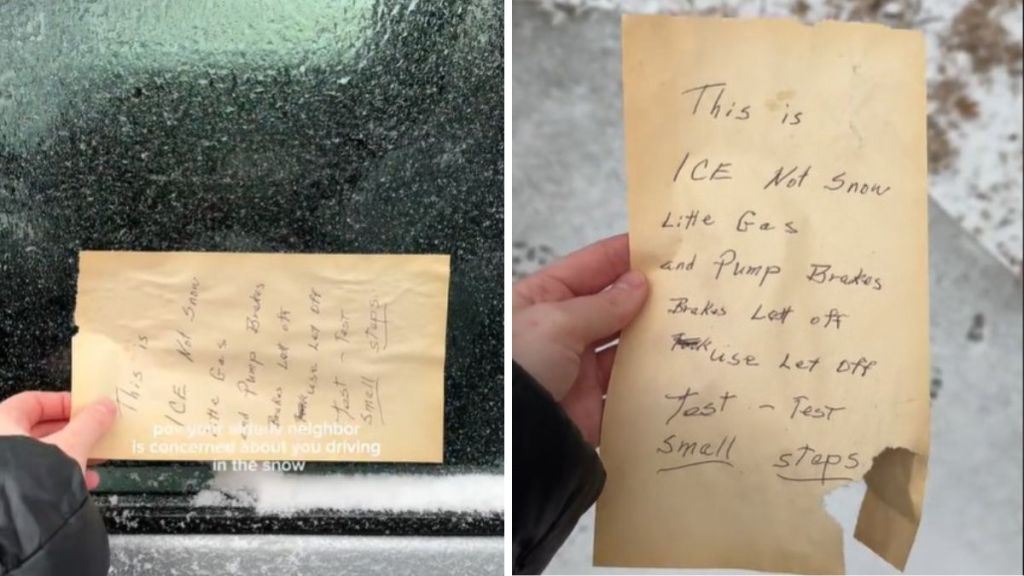 This is
ICE Not Snow
Little Gas
and Pump Brakes
Brakes Let off
use Let Off
Test - Test
small steps
pov your elderly neighbor
is concerned about you driving
in the snow
This is
ICE Not Snow
Little Gas
and Pump Brakes
Brakes Let off
use Let Off
Test - Test
small steps